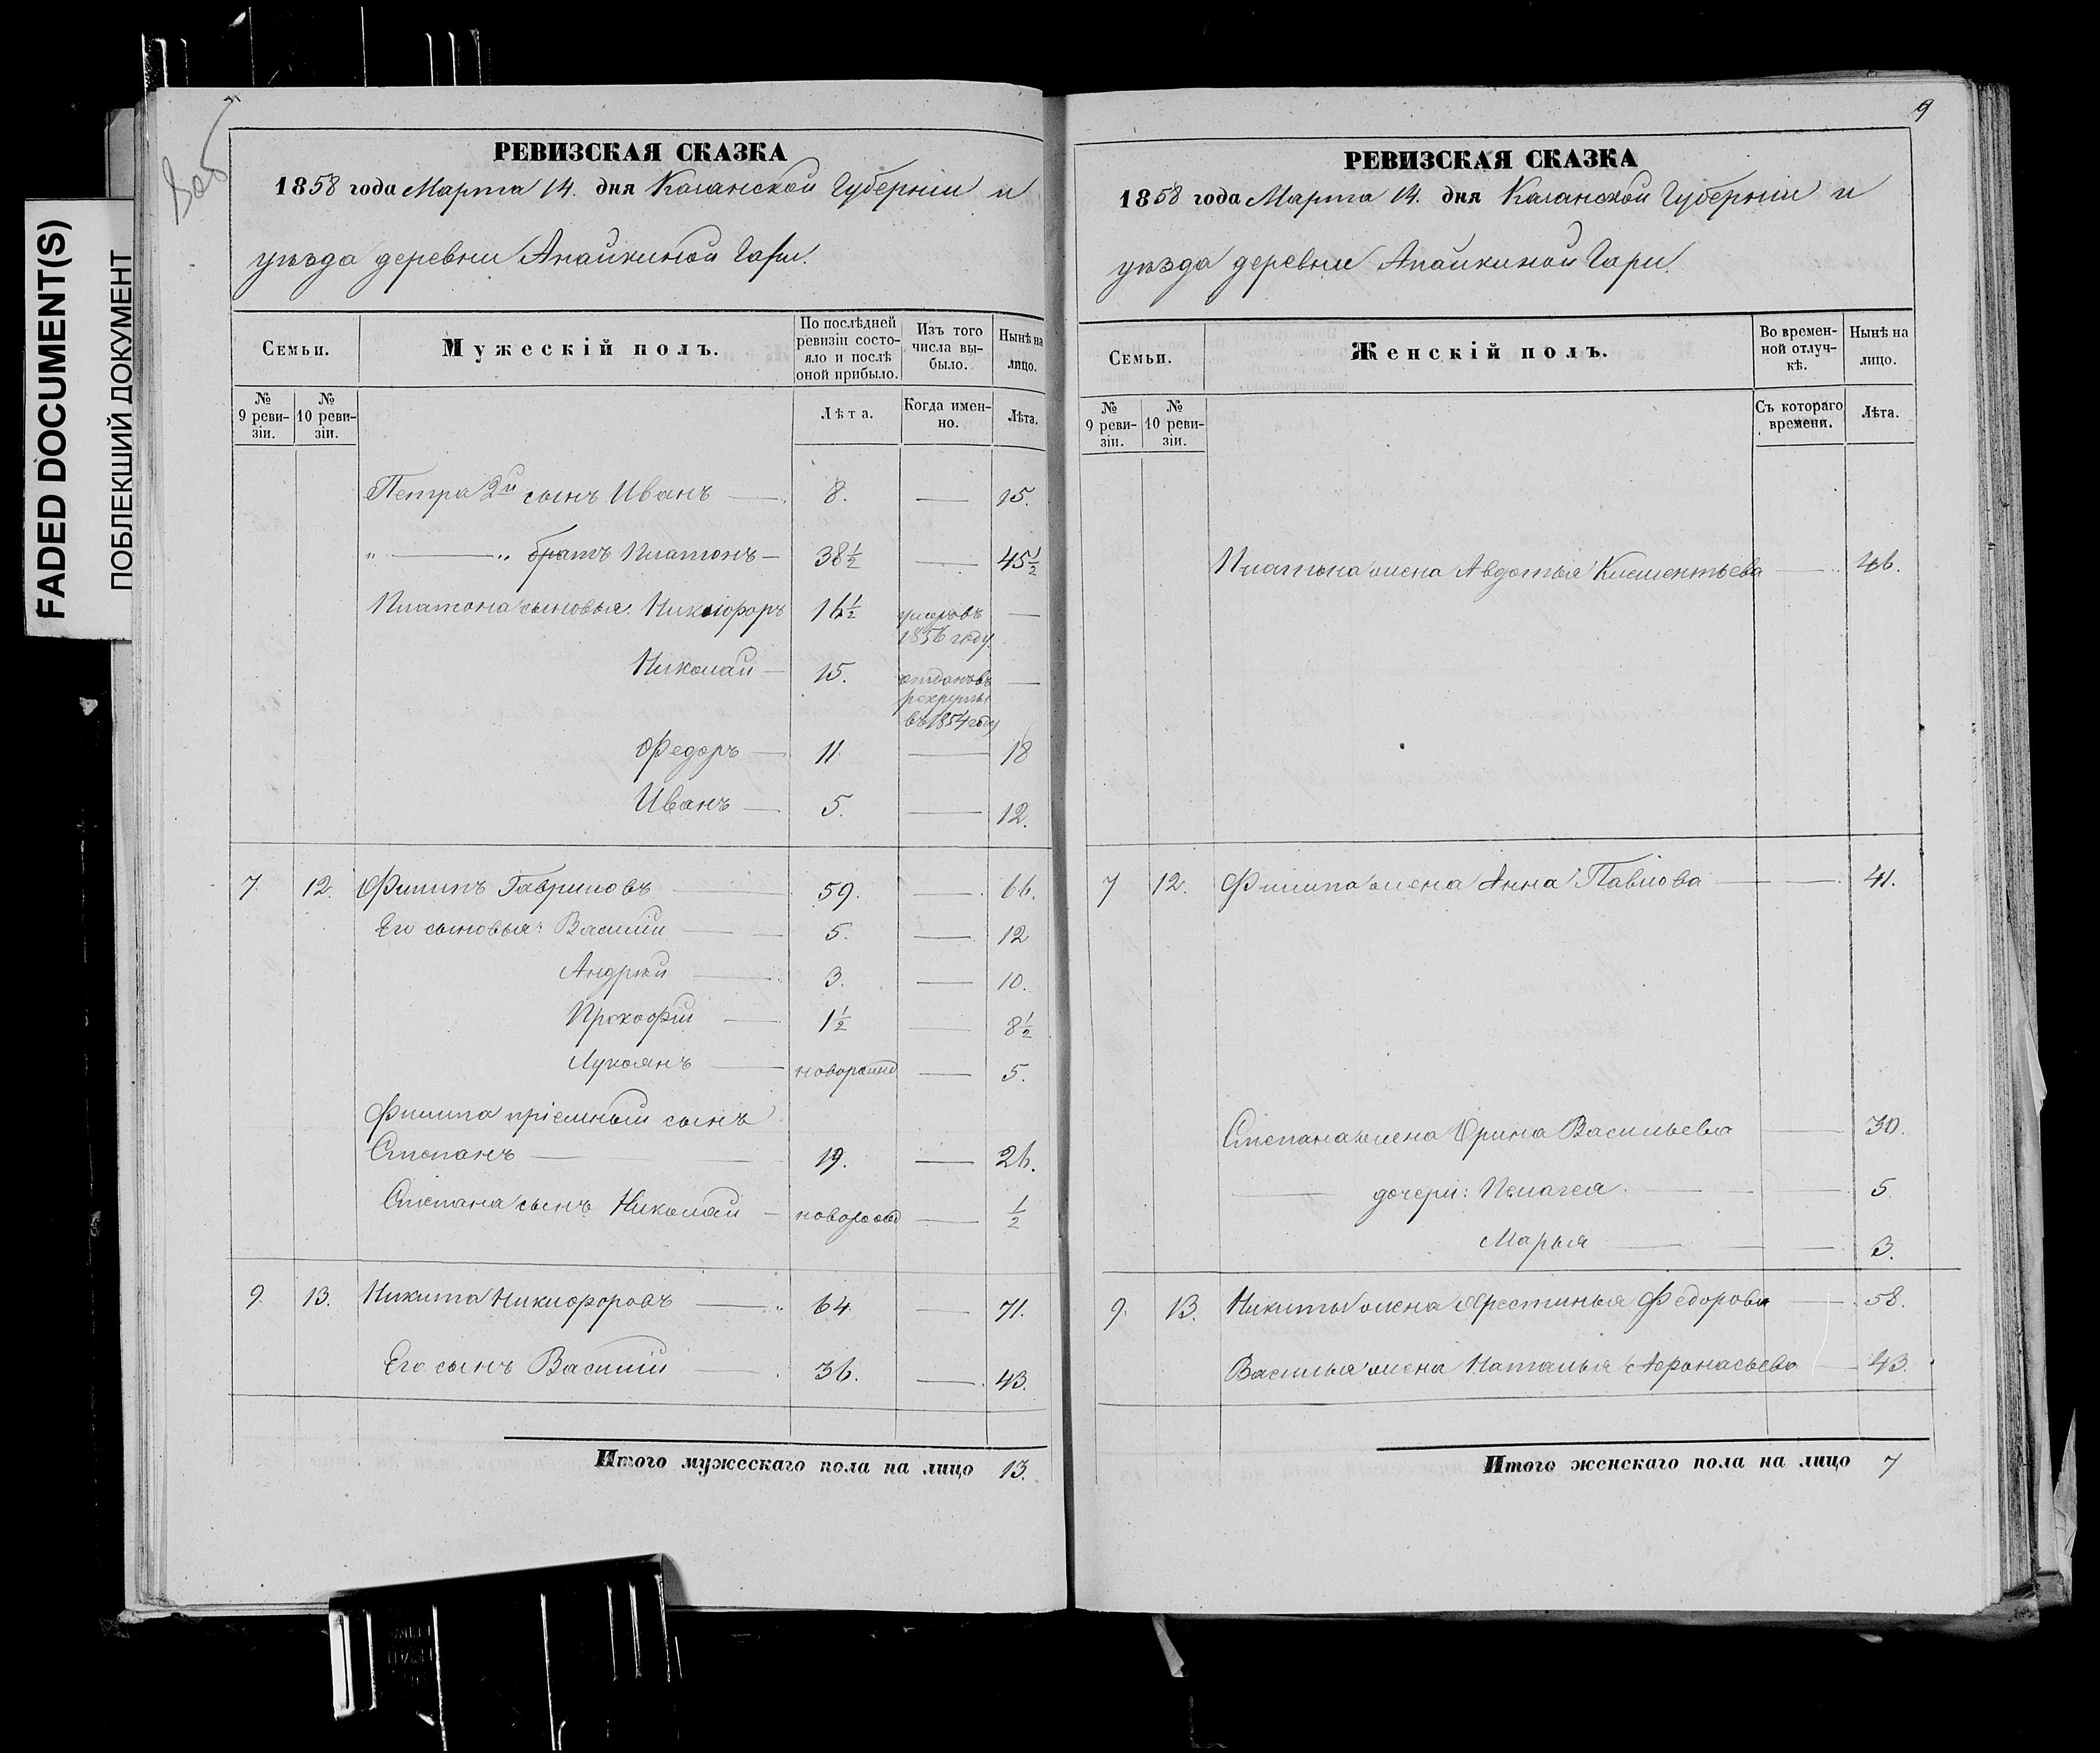 FADED DOCUMENT(S)
ПОБЛЕКШИЙ ДОКУМЕНТ
РЕВИЗСКАЯ СКАЗКА
1858 года Марта 14. дня Казанской Губерніи и
уѣзда деревни Апайкиной Гари.
Семьи.
Мужескій полъ.
По послѣдней ревизіи состояло и послѣ оной прибыло.
Изъ того числа выбыло.
Нынѣ на лицо.
№ 9 ревизіи.
№ 10 ревизіи.
Лѣта.
Когда именно.
Лѣта.
Петра 2й сынъ Иванъ — 8. — 15.
„ — „ братъ Платонъ — 38½ — 45½
Платона сыновья: Никифоръ 16½ умеръ въ 1856 году —
Николай — 15. отданъ въ рекруты въ 1854 году —
Федоръ — 11 — 18
Иванъ — 5. — 12.
7. 12. Филипъ Гавриловъ — 59. — 66.
Его сыновья: Василій — 5. — 12
Андрей — 3. — 10.
Прокофій — 1½ — 8½
Лукоянъ — новорожд — 5.
Филипа пріемный сынъ
Степанъ — 19. — 26.
Степана сынъ Николай — новорожд — ½
9. 13. Никита Никифоровъ — 64 — 71.
Его сынъ Василій — 36. — 43.
Итого мужескаго пола на лицо 13.
9
РЕВИЗСКАЯ СКАЗКА
1858 года Марта 14. дня Казанской Губерніи и
уѣзда деревни Апайкиной Гари.
Семьи.
Женскій полъ.
Во временной отлучкѣ.
Нынѣ на лицо.
№ 9 ревизіи.
№ 10 ревизіи.
Съ котораго времени.
Лѣта.
Платона жена Авдотья Клементьева — 46.
7 12. Филипа жена Анна Павлова — 41.
Степана жена Орина Васильева — 30.
— дочери: Пелагея — 5
Марья — 3.
9. 13. Никиты жена Хрестинья Федорова — 58.
Василья жена Наталья Афонасьева — 43.
Итого женскаго пола на лицо 7